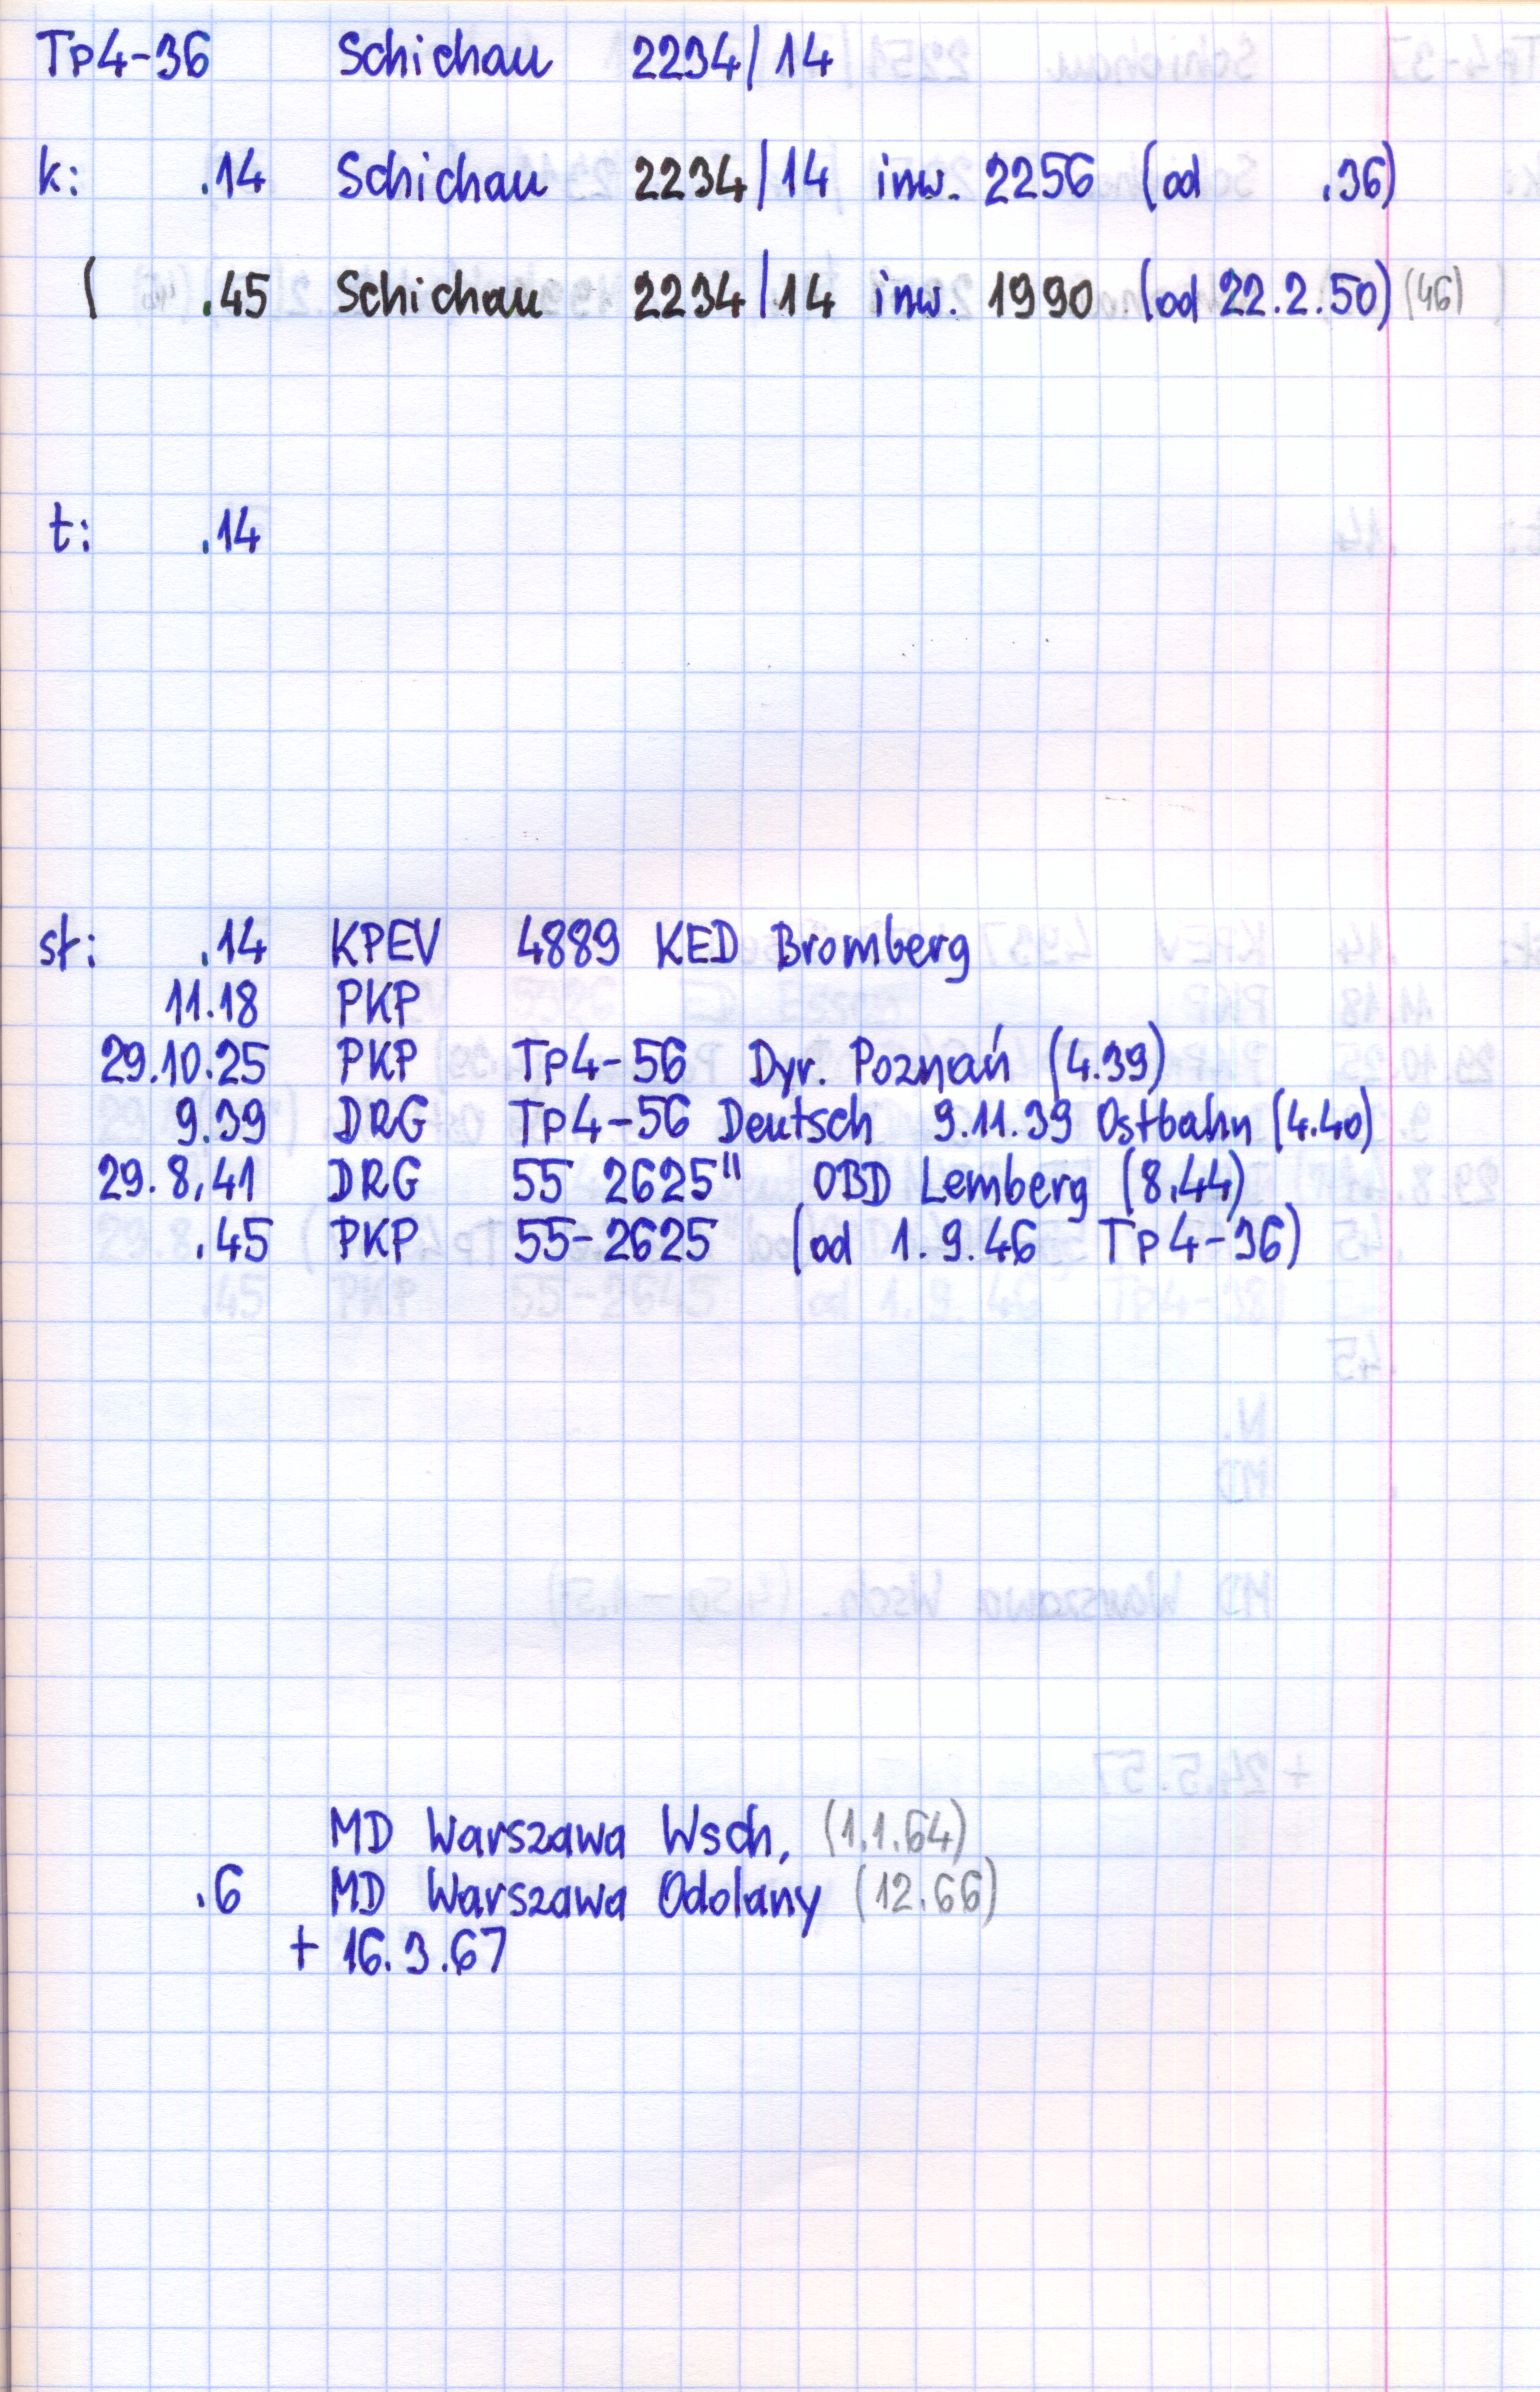 Tp4-36 Schichau 2234/14
k: .14 Schichau 2234/14 inw. 2256 (od .36)
( .45 Schichau 2234/14 inw. 1990 (od 22.2.50) (46)
t: .14
st: .14 KPEV 4889 KED Bromberg
11.18 PKP
29.10.25 PKP Tp4-56 Dyr. Poznań (4.39)
9.39 DRG Tp4-56 Deutsch 9.11.39 Ostbahn (4.40)
29.8.41 DRG 55 2625" OBD Lemberg (8.44)
.45 PKP 55-2625 (od 1.9.46 Tp4-36)
MD Warszawa Wsch. (1.1.64)
.6 MD Warszawa Odolany (12.66)
+ 16.3.67